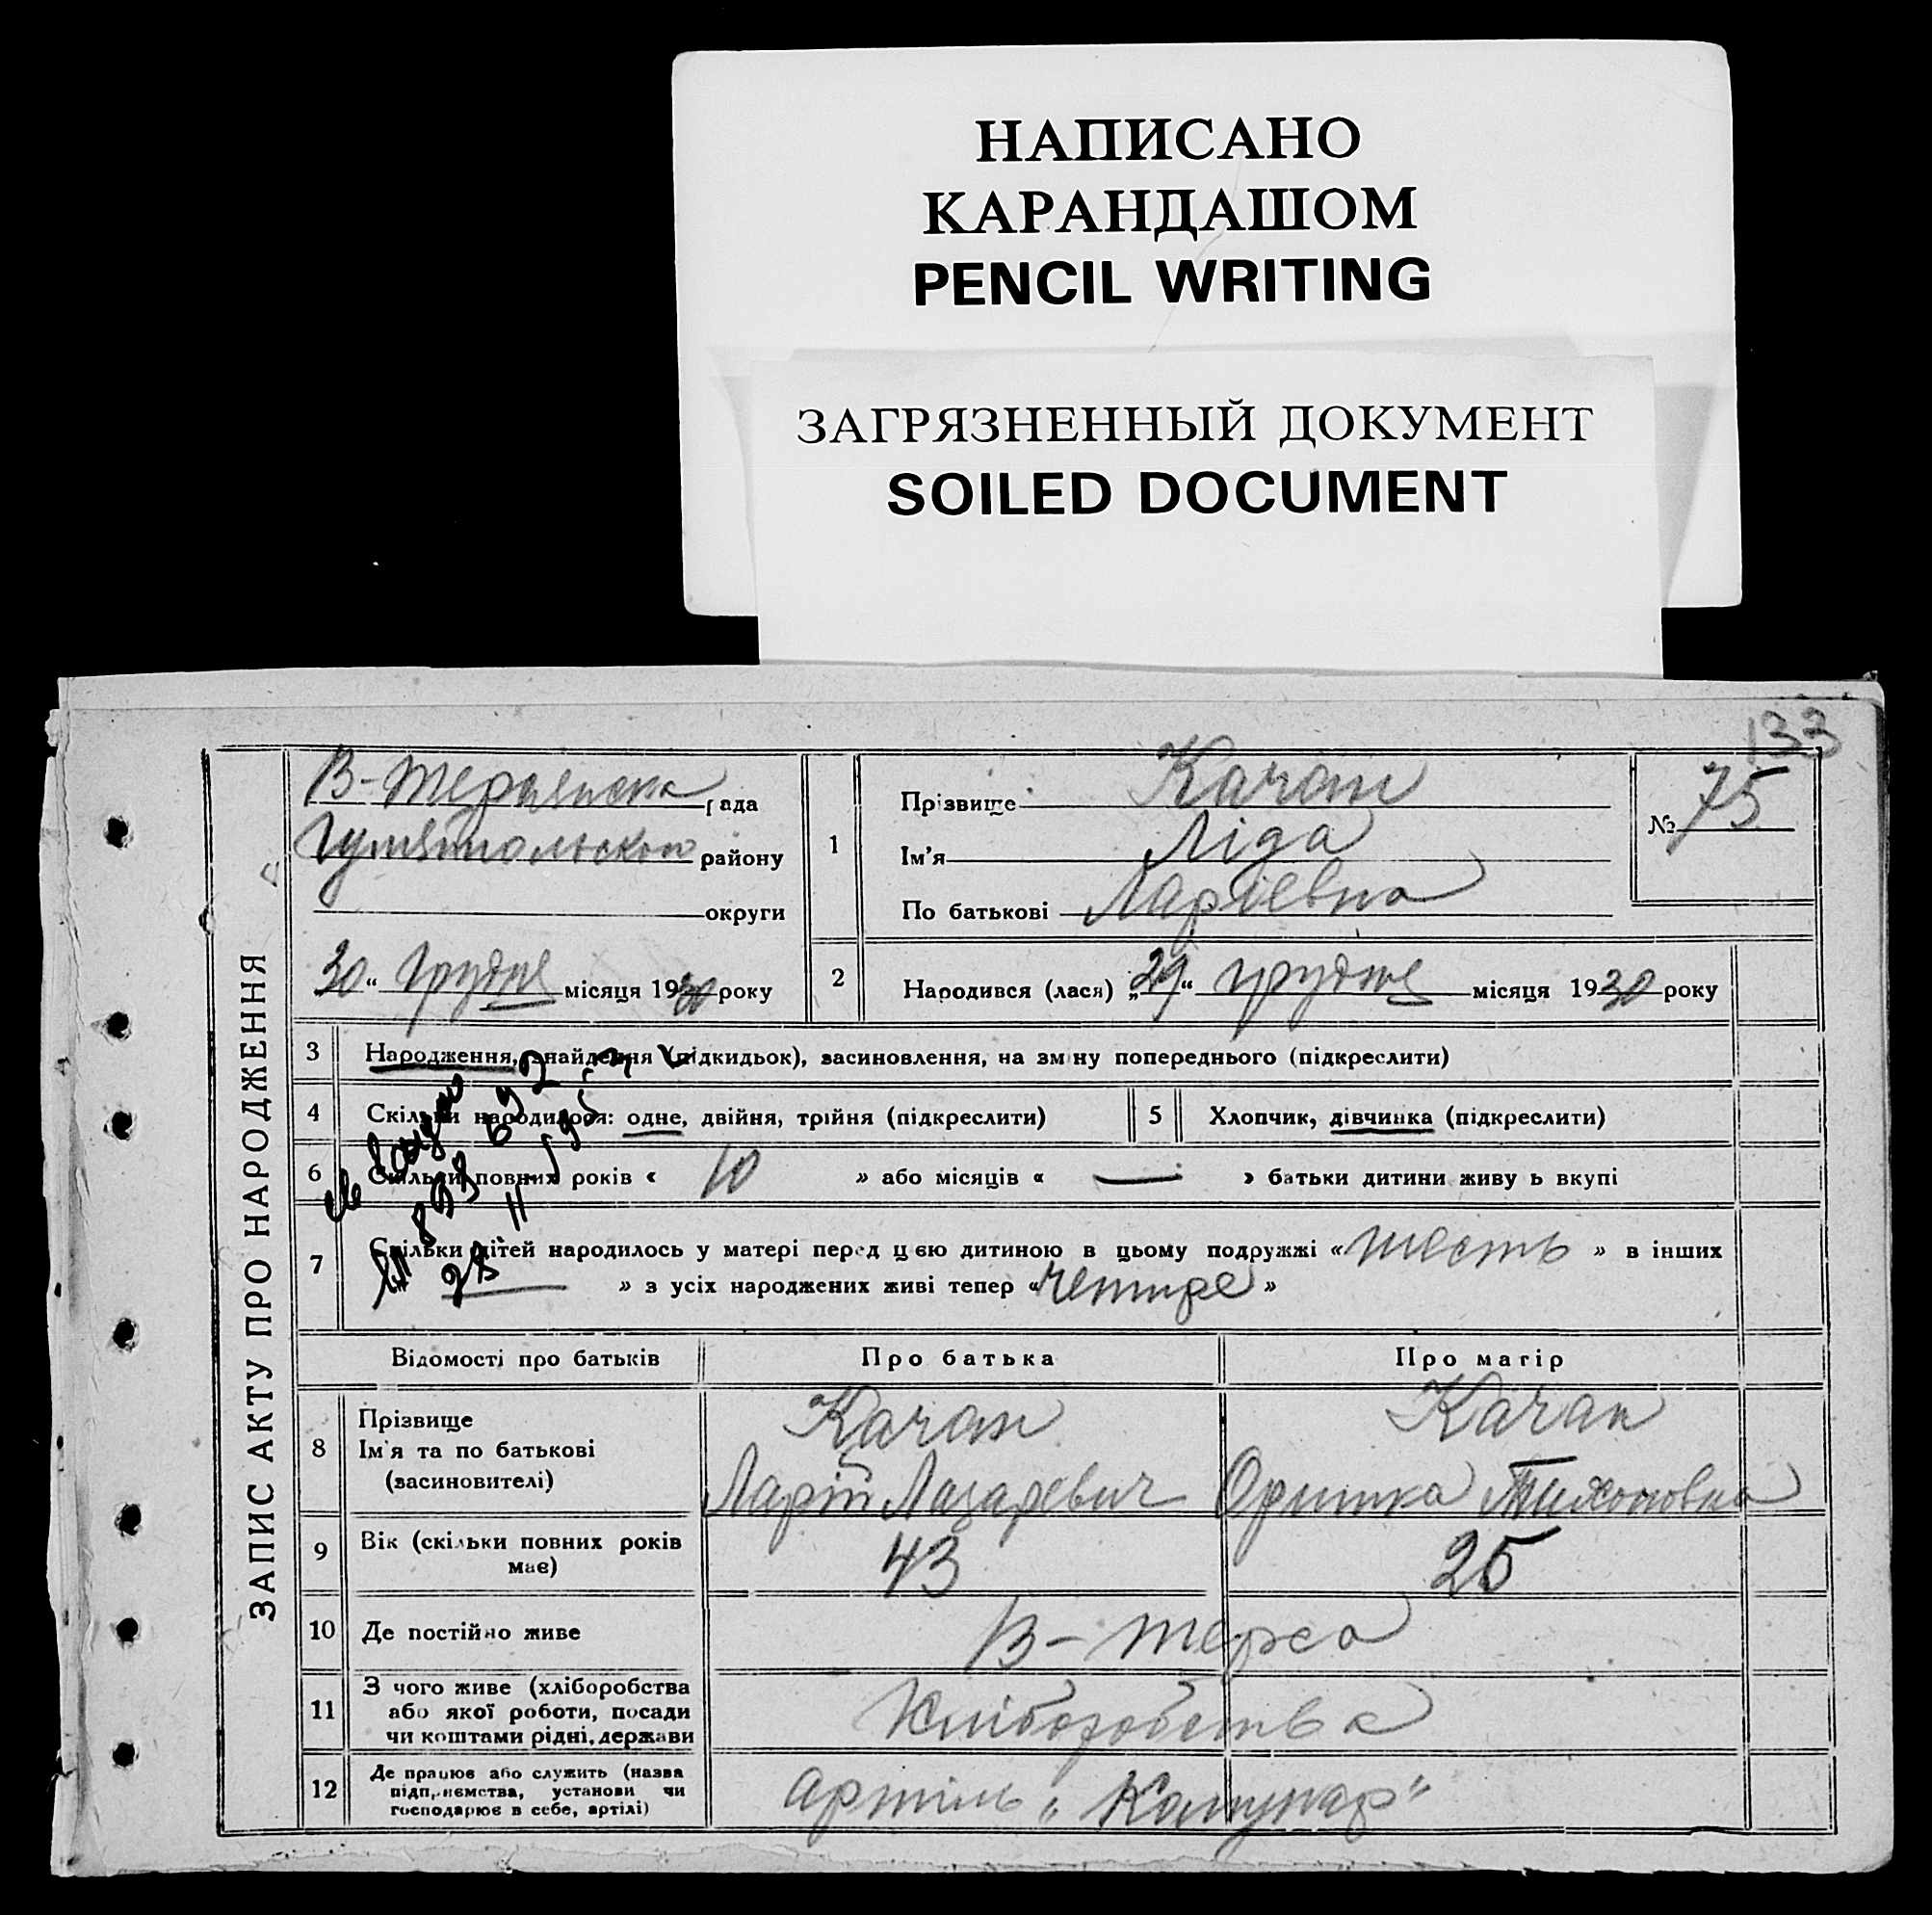 НАПИСАНО
КАРАНДАШОМ
PENCIL WRITING
ЗАГРЯЗНЕННЫЙ ДОКУМЕНТ
SOILED DOCUMENT
133
ЗАПИС АКТУ ПРО НАРОДЖЕННЯ
В-Терсянська рада
Гуляйпольского району
округи
30 “ Грудня місяця 1930 року
1
Прізвище Качан
Ім'я Ліда
По батькові Ларіевна
№ 75
2 Народився (лася) „29“ грудня місяця 1930 року
3 Народження, знайдення (підкидьок), засиновлення, на зміну попереднього (підкреслити)
4 Скільки народилося: одне, двійня, трійня (підкреслити)
5 Хлопчик, дівчинка (підкреслити)
6 Скільки повних років « 10 » або місяців « — » батьки дитини живуть вкупі
7 Скільки дітей народилось у матері перед цією дитиною в цьому подружжі « шесть » в інших
» з усіх народжених живі тепер « четире »
Відомості про батьків Про батька Про матір
8 Прізвище
Ім'я та по батькові
(засиновителі)
Качан
Ларій Лазаревич
Качан
Оришка Тихоновна
9 Вік (скільки повних років
має)
43 25
10 Де постійно живе В-Терса
11 З чого живе (хліборобства
або якої роботи, посади
чи коштами рідні, держави
Хліборобства
12 Де працює або служить (назва
підприємства, установи чи
господарює в себе, артілі)
артіль „Комунар“